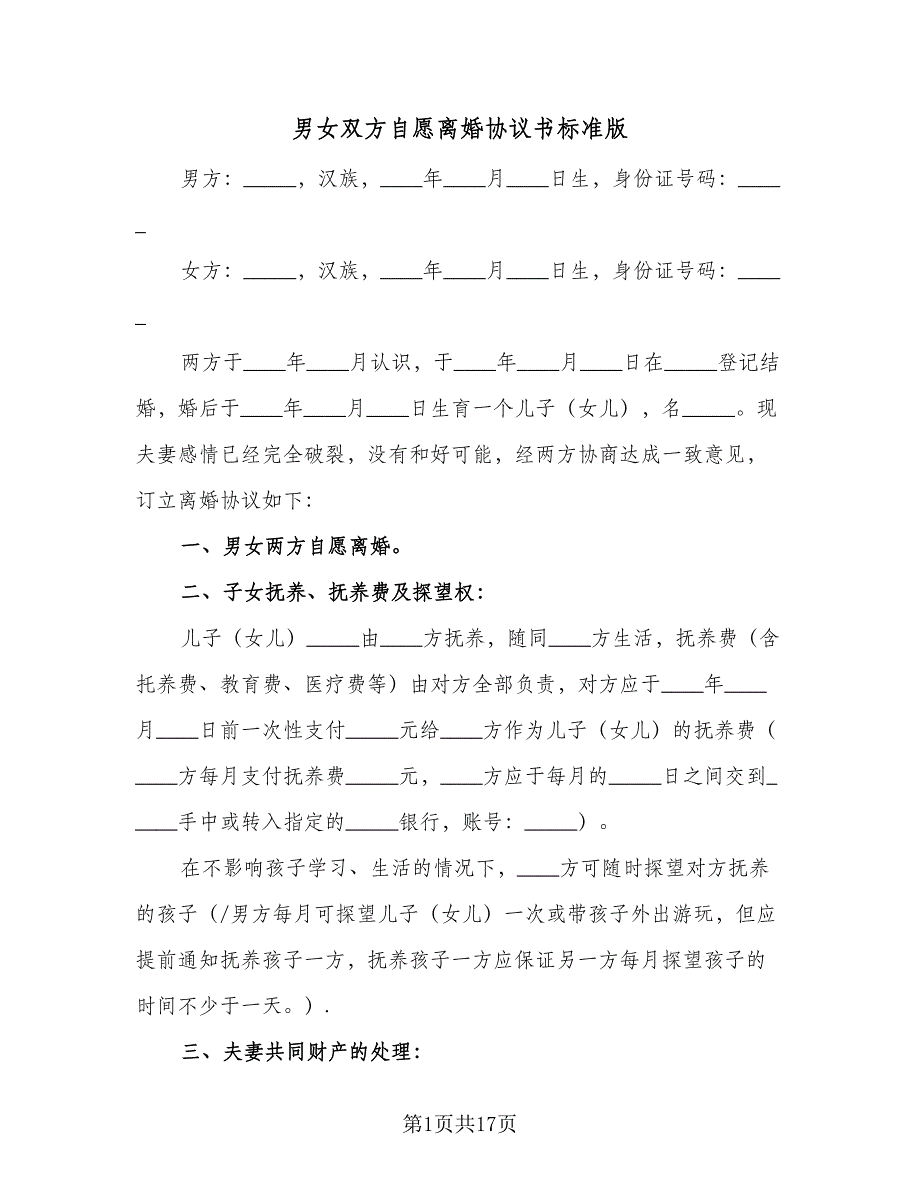 男女双方自愿离婚协议书标准版
男方：_____，汉族，____年____月____日生，身份证号码：____
_
女方：_____，汉族，____年____月____日生，身份证号码：____
_
两方于____年____月认识，于____年____月____日在_____登记结
婚，婚后于____年____月____日生育一个儿子（女儿），名_____。现
夫妻感情已经完全破裂，没有和好可能，经两方协商达成一致意见，
订立离婚协议如下：
一、男女两方自愿离婚。
二、子女抚养、抚养费及探望权：
儿子（女儿）_____由____方抚养，随同____方生活，抚养费（含
托养费、教育费、医疗费等）由对方全部负责，对方应于____年____
月____日前一次性支付_____元给____方作为儿子（女儿）的抚养费（
____方每月支付抚养费_____元，____方应于每月的_____日之间交到_
____手中或转入指定的_____银行，账号：_____）。
在不影响孩子学习、生活的情况下，____方可随时探望对方抚养
的孩子（/男方每月可探望儿子（女儿）一次或带孩子外出游玩，但应
提前通知抚养孩子一方，抚养孩子一方应保证另一方每月探望孩子的
时间不少于一天。）.
三、夫妻共同财产的处理：
第1页共17页